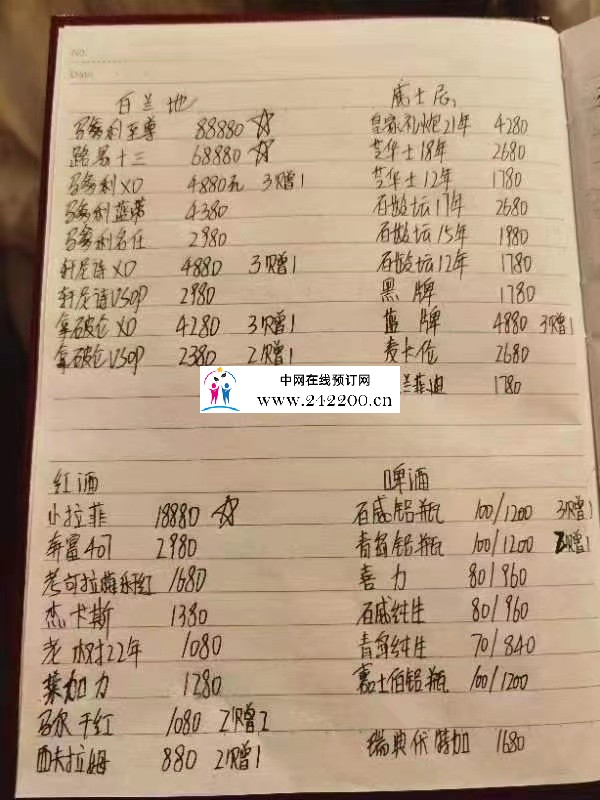 No:
Date:
百兰地
马爹利至尊 88880 ☆
路易十三 68880 ☆
马爹利XO 4880元 3赠1
马爹利蓝带 4380
马爹利名仕 2980
轩尼诗XO 4880 3赠1
轩尼诗VSOP 2980
拿破仑XO 4280 3赠1
拿破仑VSOP 2380 2赠1
威士忌
皇家礼炮21年 4280
芝华士18年 2680
芝华士12年 1780
百龄坛17年 2680
百龄坛15年 1980
百龄坛12年 1780
黑牌 1780
蓝牌 4880 3赠1
麦卡伦 2680
兰菲迪 1780
中网在线预订网
www.242200.cn
红酒
小拉菲 18880 ☆
奔富407 2980
1680
杰卡斯 1380
老树22年 1080
莱加力 1280
马尔干红 1080 2赠2
西夫拉姆 880 2赠1
啤酒
百威铝瓶 100/1200 3赠1
青岛铝瓶 100/1200 2赠1
喜力 80/960
百威纯生 80/960
青岛纯生 70/840
嘉士伯铝瓶 100/1200
瑞典伏特加 1680